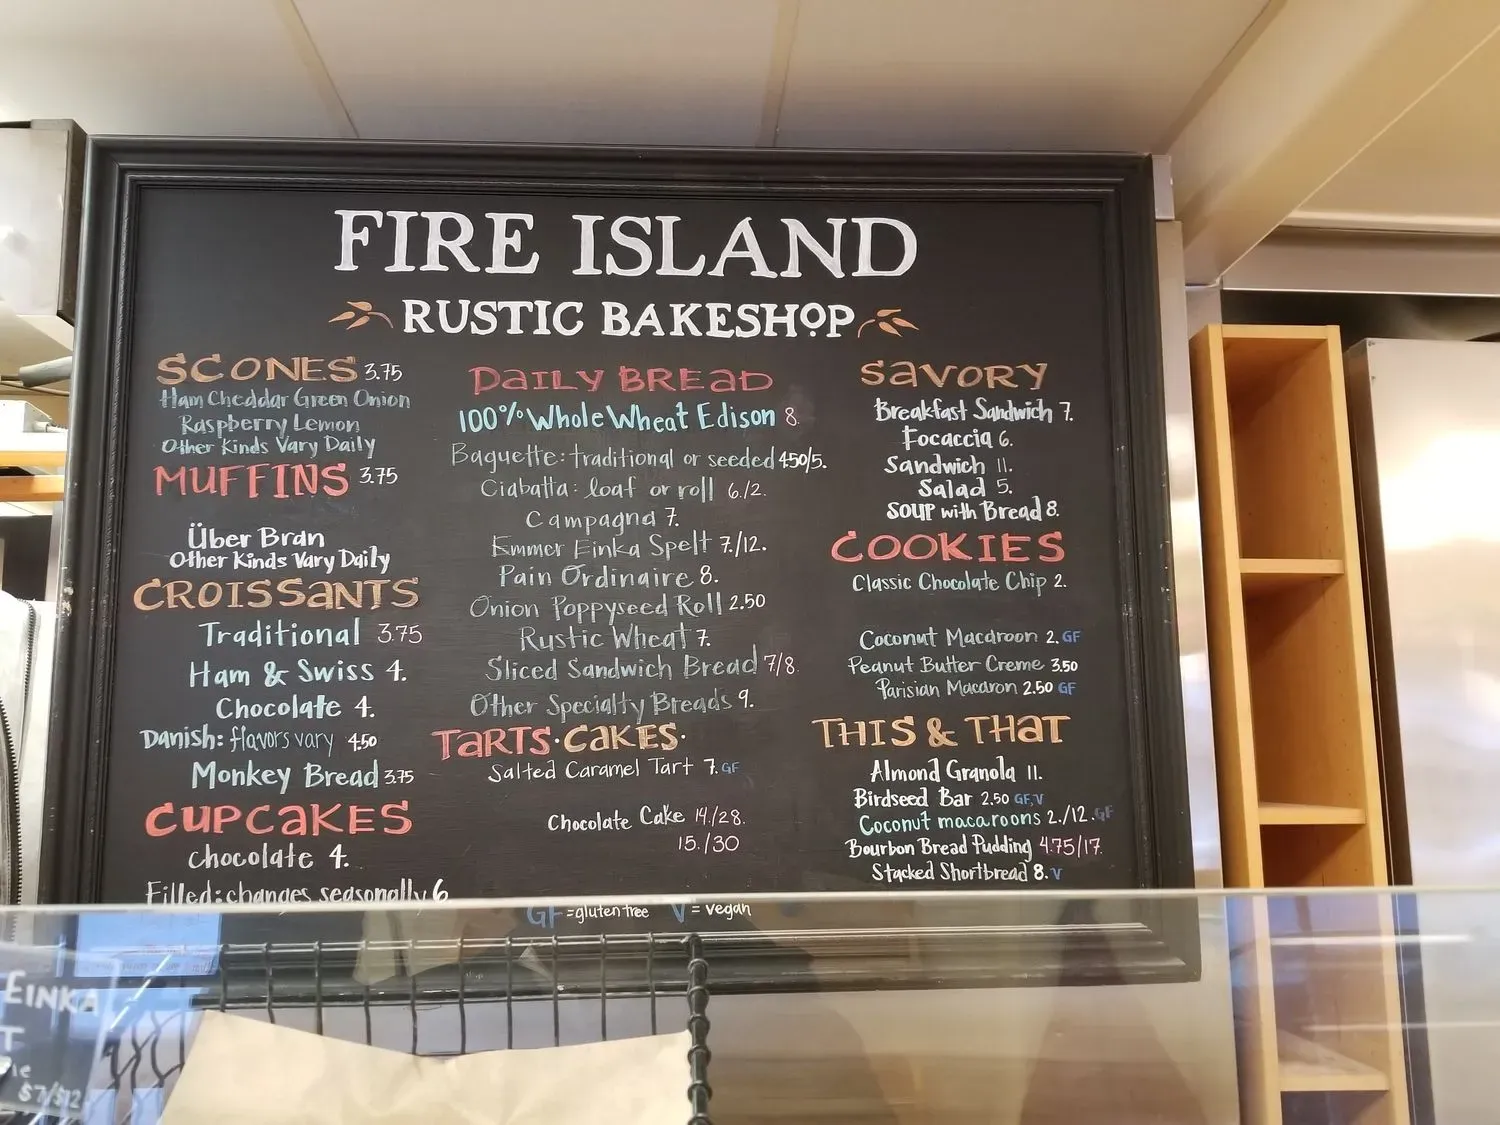 FIRE ISLAND
RUSTIC BAKESHOP
SCONES 3.75
Ham Cheddar Green Onion
Raspberry Lemon
Other Kinds Vary Daily
MUFFINS 3.75
Über Bran
Other Kinds Vary Daily
CROISSANTS
Traditional 3.75
Ham & Swiss 4.
Chocolate 4.
Danish: flavors vary 4.50
Monkey Bread 3.75
CUPCAKES
chocolate 4.
Filled: changes seasonally 6
DAILY BREAD
100% Whole Wheat Edison 8.
Baguette: traditional or seeded 450/5.
Ciabatta: loaf or roll 6./2.
Campagna 7.
Emmer Einka Spelt 7./12.
Pain Ordinaire 8.
Onion Poppyseed Roll 2.50
Rustic Wheat 7.
Sliced Sandwich Bread 7/8.
Other Specialty Breads 9.
TARTS·CAKES·
Salted Caramel Tart 7. GF
Chocolate Cake 14./28.
15./30
SAVORY
Breakfast Sandwich 7.
Focaccia 6.
Sandwich 11.
Salad 5.
SOUP with Bread 8.
COOKIES
Classic Chocolate Chip 2.
Coconut Macaroon 2. GF
Peanut Butter Creme 3.50
Parisian Macaron 2.50 GF
THIS & THAT
Almond Granola 11.
Birdseed Bar 2.50 GF,V
Coconut macaroons 2./12. GF
Bourbon Bread Pudding 4.75/17.
Stacked Shortbread 8. V
GF = gluten free V = vegan
EINKA
T
$7/$12